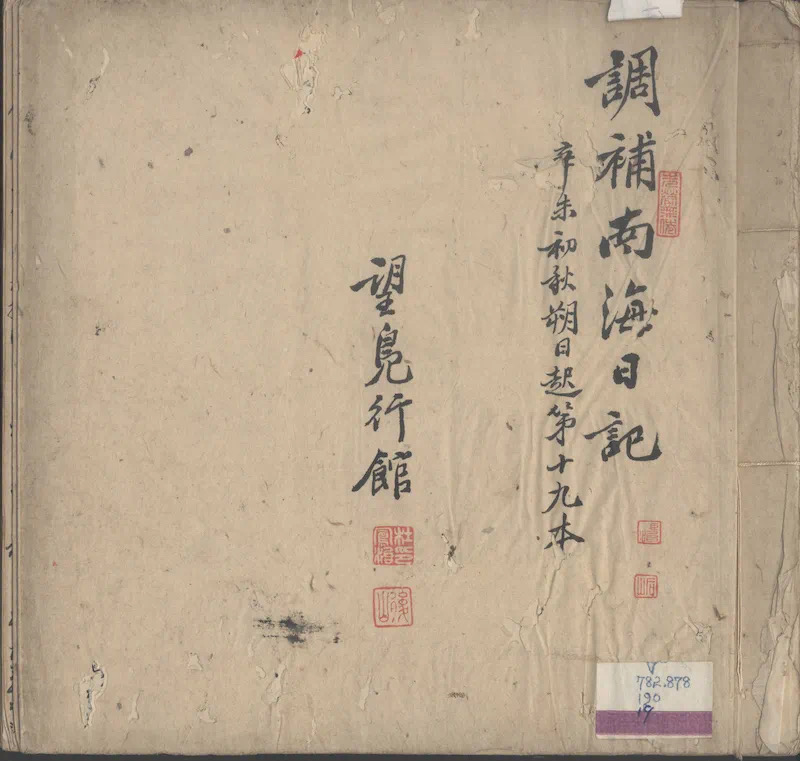 調補南海日記
辛未初秋朔日起第十九本
望鳧行館
杜鳳治印
後山
V
782.878
190
19